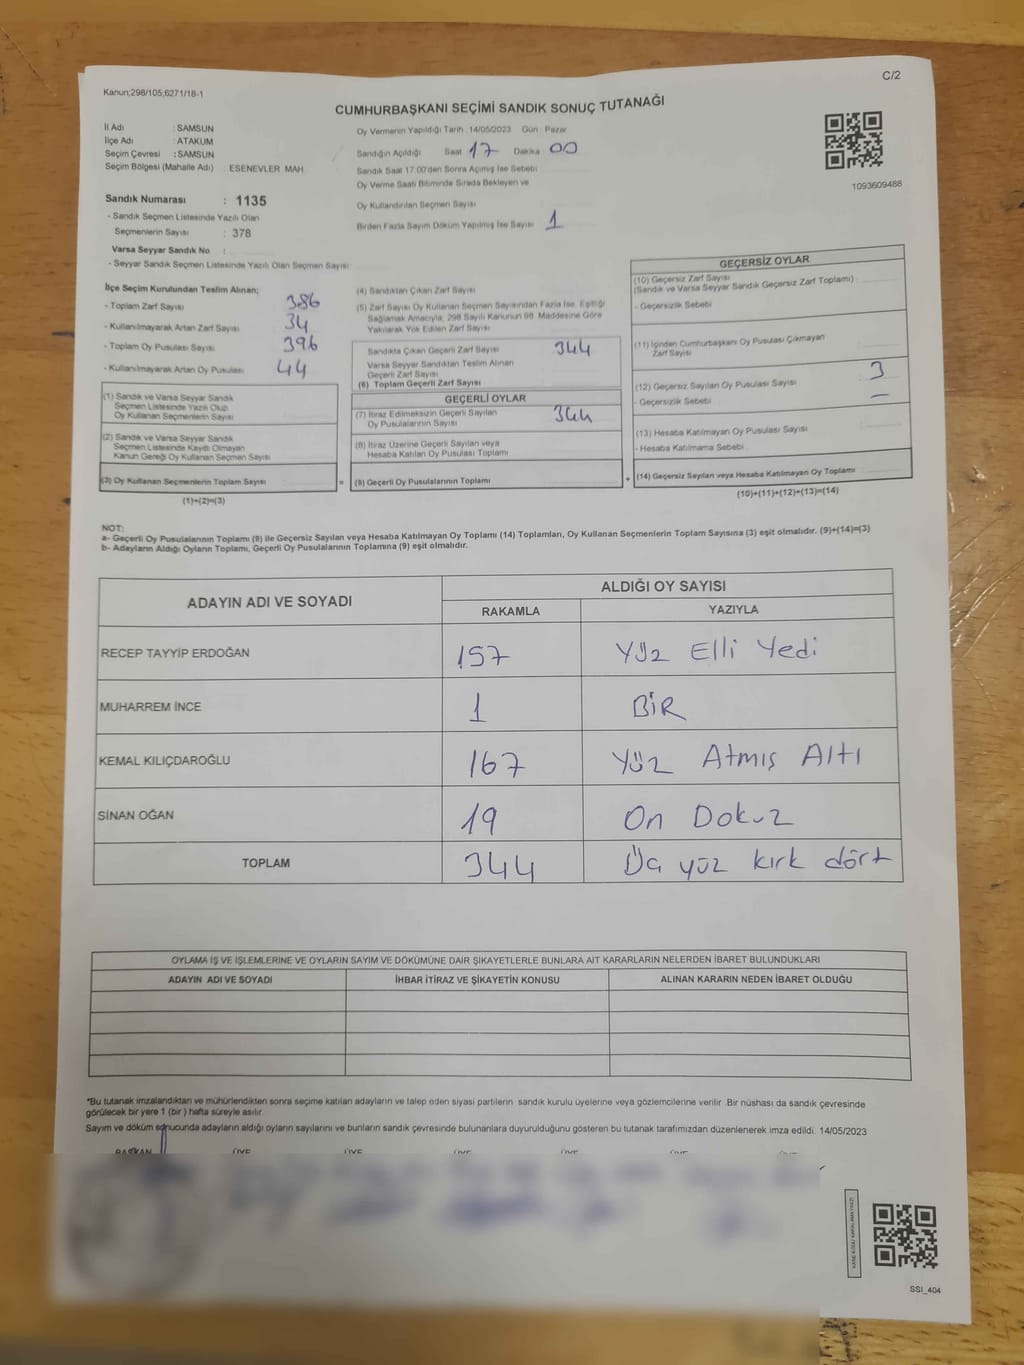 C/2
Kanun;298/105,6271/18-1
CUMHURBAŞKANI SEÇİMİ SANDIK SONUÇ TUTANAĞI
İl Adı : SAMSUN
İlçe Adı : ATAKUM
Seçim Çevresi : SAMSUN
Seçim Bölgesi (Mahalle Adı) : ESENEVLER MAH.
Sandık Numarası : 1135
- Sandık Seçmen Listesinde Yazılı Olan
Seçmenlerin Sayısı : 378
Varsa Seyyar Sandık No :
- Seyyar Sandık Seçmen Listesinde Yazılı Olan Seçmen Sayısı
Oy Vermenin Yapıldığı Tarih : 14/05/2023 Gün : Pazar
Sandığın Açıldığı Saat 17 Dakika 00
Sandık Saat 17:00'den Sonra Açımış İse Sebebi
Oy Verme Saati Bitiminde Sırada Bekleyen ve
Oy Kullandırılan Seçmen Sayısı
Birden Fazla Sayım Döküm Yapılmış İse Sayısı 1
1093609488
İlçe Seçim Kurulundan Teslim Alınan;
- Toplam Zarf Sayısı 386
- Kullanılmayarak Artan Zarf Sayısı 34
- Toplam Oy Pusulası Sayısı 396
- Kullanılmayarak Artan Oy Pusulası 44
(1) Sandık ve Varsa Seyyar Sandık
Seçmen Listesinde Yazılı Olup
Oy Kullanan Seçmenlerin Sayısı
(2) Sandık ve Varsa Seyyar Sandık
Seçmen Listesinde Kayıtlı Olmayan
Kanun Gereği Oy Kullanan Seçmen Sayısı
(3) Oy Kullanan Seçmenlerin Toplam Sayısı
=
(1)+(2)=(3)
(4) Sandıktan Çıkan Zarf Sayısı
(5) Zarf Sayısı Oy Kullanan Seçmen Sayısından Fazla İse, Eşitliği
Sağlamak Amacıyla, 298 Sayılı Kanunun 98. Maddesine Göre
Yakılarak Yok Edilen Zarf Sayısı
Sandıkta Çıkan Geçerli Zarf Sayısı 344
Varsa Seyyar Sandıktan Teslim Alınan
Geçerli Zarf Sayısı
(6) Toplam Geçerli Zarf Sayısı
GEÇERLİ OYLAR
(7) İtiraz Edilmeksizin Geçerli Sayılan
Oy Pusulalarının Sayısı 344
(8) İtiraz Üzerine Geçerli Sayılan veya
Hesaba Katılan Oy Pusulası Toplamı
(9) Geçerli Oy Pusulalarının Toplamı
+
GEÇERSİZ OYLAR
(10) Geçersiz Zarf Sayısı
(Sandık ve Varsa Seyyar Sandık Geçersiz Zarf Toplamı)
- Geçersizlik Sebebi
(11) İçinden Cumhurbaşkanı Oy Pusulası Çıkmayan
Zarf Sayısı
(12) Geçersiz Sayılan Oy Pusulası Sayısı 3
- Geçersizlik Sebebi —
(13) Hesaba Katılmayan Oy Pusulası Sayısı
- Hesaba Katılmama Sebebi
(14) Geçersiz Sayılan veya Hesaba Katılmayan Oy Toplamı
(10)+(11)+(12)+(13)=(14)
NOT:
a- Geçerli Oy Pusulalarının Toplamı (9) ile Geçersiz Sayılan veya Hesaba Katılmayan Oy Toplamı (14) Toplamları, Oy Kullanan Seçmenlerin Toplam Sayısına (3) eşit olmalıdır. (9)+(14)=(3)
b- Adayların Aldığı Oyların Toplamı, Geçerli Oy Pusulalarının Toplamına (9) eşit olmalıdır.
ADAYIN ADI VE SOYADI ALDIĞI OY SAYISI
RAKAMLA YAZIYLA
RECEP TAYYİP ERDOĞAN 157 Yüz Elli Yedi
MUHARREM İNCE 1 BİR
KEMAL KILIÇDAROĞLU 167 Yüz Atmış Altı
SİNAN OĞAN 19 On Dokuz
TOPLAM 344 Üç yüz kırk dört
OYLAMA İŞ VE İŞLEMLERİNE VE OYLARIN SAYIM VE DÖKÜMÜNE DAİR ŞİKAYETLERLE BUNLARA AİT KARARLARIN NELERDEN İBARET BULUNDUKLARI
ADAYIN ADI VE SOYADI İHBAR İTİRAZ VE ŞİKAYETİN KONUSU ALINAN KARARIN NEDEN İBARET OLDUĞU
*Bu tutanak imzalandıktan ve mühürlendikten sonra seçime katılan adayların ve talep eden siyasi partilerin sandık kurulu üyelerine veya gözlemcilerine verilir .Bir nüshası da sandık çevresinde
görülecek bir yere 1 (bir ) hafta süreyle asılır.
Sayım ve döküm sonucunda adayların aldığı oyların sayılarını ve bunların sandık çevresinde bulunanlara duyurulduğunu gösteren bu tutanak tarafımızdan düzenlenerek imza edildi. 14/05/2023
BAŞKAN ÜYE ÜYE ÜYE ÜYE ÜYE ÜYE
SSİ_404